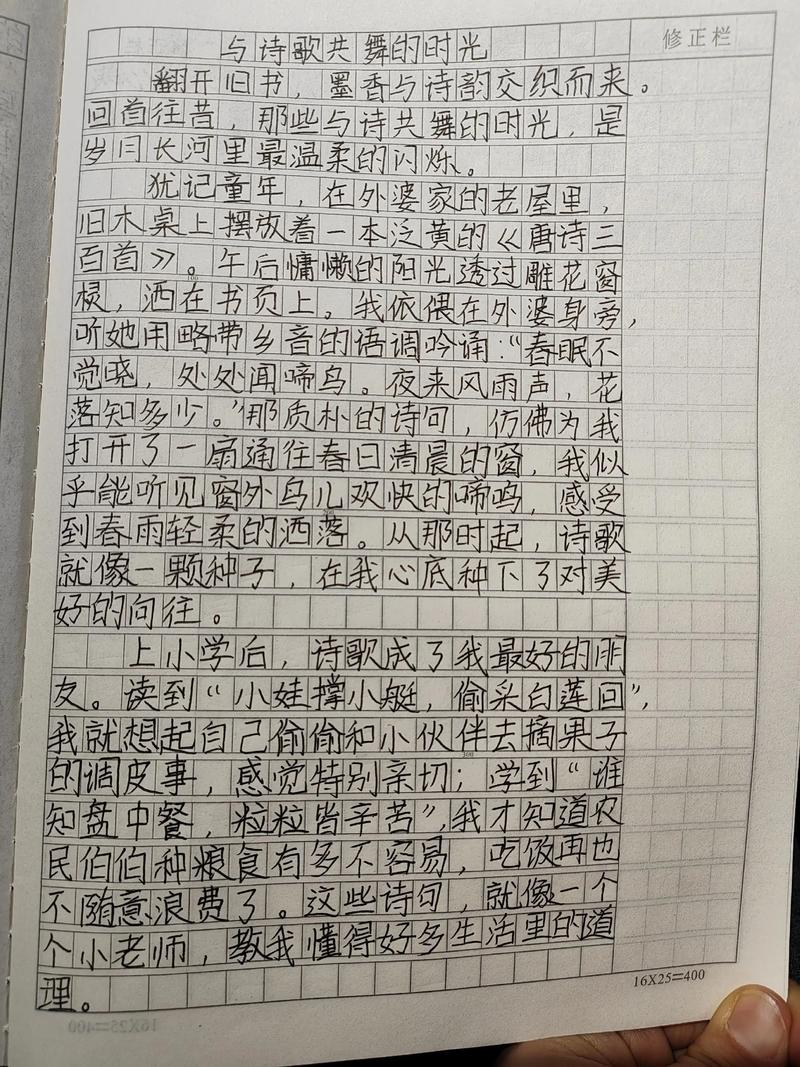 与诗歌共舞的时光
修正栏
翻开旧书，墨香与诗韵交织而来。
回首往昔，那些与诗共舞的时光，是
岁月长河里最温柔的闪烁。
犹记童年，在外婆家的老屋里，
旧木桌上摆放着一本泛黄的《唐诗三
百首》。午后慵懒的阳光透过雕花窗
棂，洒在书页上。我依偎在外婆身旁，
听她用略带乡音的语调吟诵："春眠不
觉晓，处处闻啼鸟。夜来风雨声，花
落知多少。"那质朴的诗句，仿佛为我
打开了一扇通往春日清晨的窗，我似
乎能听见窗外鸟儿欢快的啼鸣，感受
到春雨轻柔的洒落。从那时起，诗歌
就像一颗种子，在我心底种下了对美
好的向往。
上小学后，诗歌成了我最好的朋
友。读到"小娃撑小艇，偷采白莲回"，
我就想起自己偷偷和小伙伴去摘果子
的调皮事，感觉特别亲切；学到"谁
知盘中餐，粒粒皆辛苦"，我才知道农
民伯伯种粮食有多不容易，吃饭再也
不随意浪费了。这些诗句，就像一个
个小老师，教我懂得好多生活里的道
理。
16X25=400